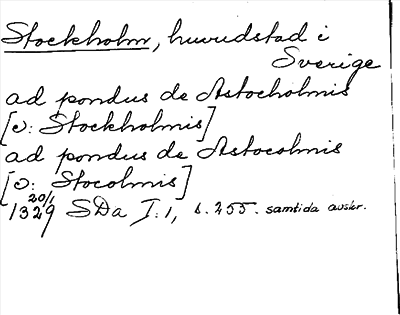 Stockholm, huvudstad i
Sverige
ad pondus de Astocholmis
[v: Stockholmis]
ad pondus de Astocolmis
[v: Stocolmis]
20/1
1329 SDa I:1, s. 255. samtida avskr.